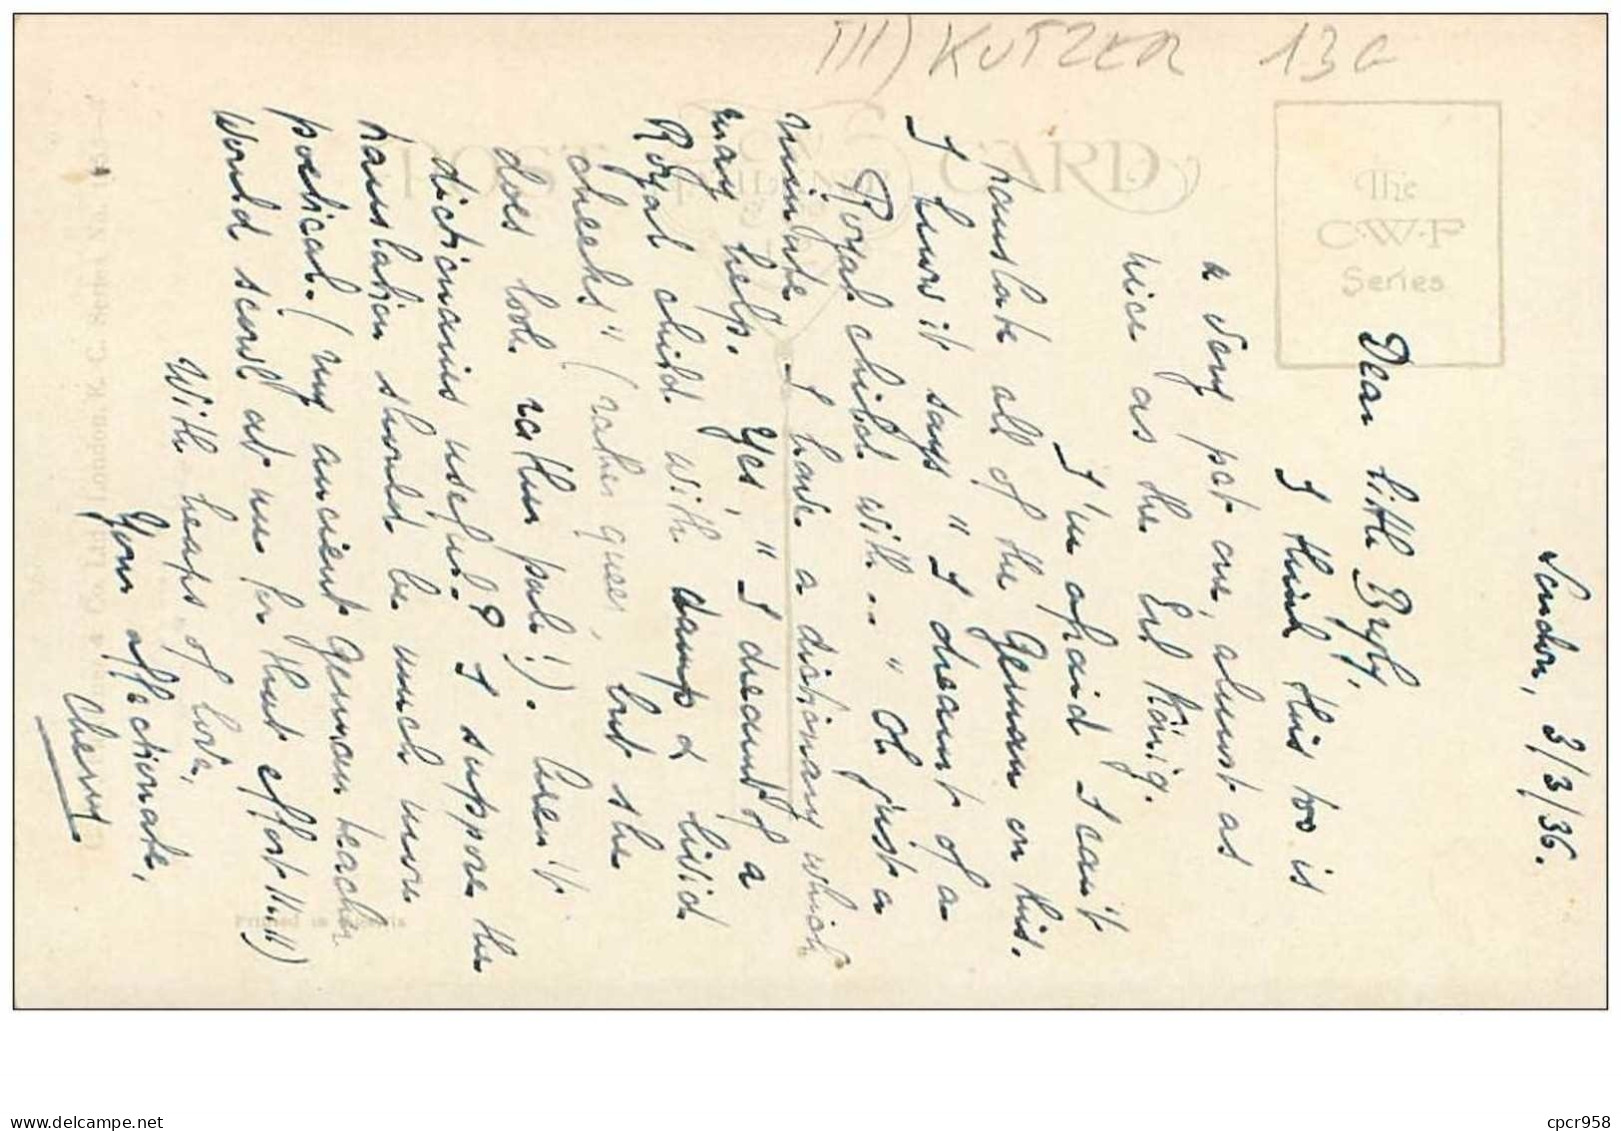 III) KUTZER 13 G
POST CARD
The
C·W·F
Series
London, 3/3/36.
Dear little
I think this too is
a very pet one, almost as
nice as the Erl König.
I'm afraid I can't
translate all of the German on this.
I know it says "I dreamt of a
Royal child with..." Oh just a
minute - I have a dictionary which
may help. Yes, "I dreamt of a
Royal child with damp & livid
cheeks" (rather queer, but she
does look rather pale!). Aren't
dictionaries useful? I suppose the
translation should be much more
poetical. (My ancient German teacher
would scowl at me for that effort!!!!)
With heaps of love,
Your affectionate,
Cherry.
Co. Ltd., London, E. C. Series No.
Printed in
cpcr958